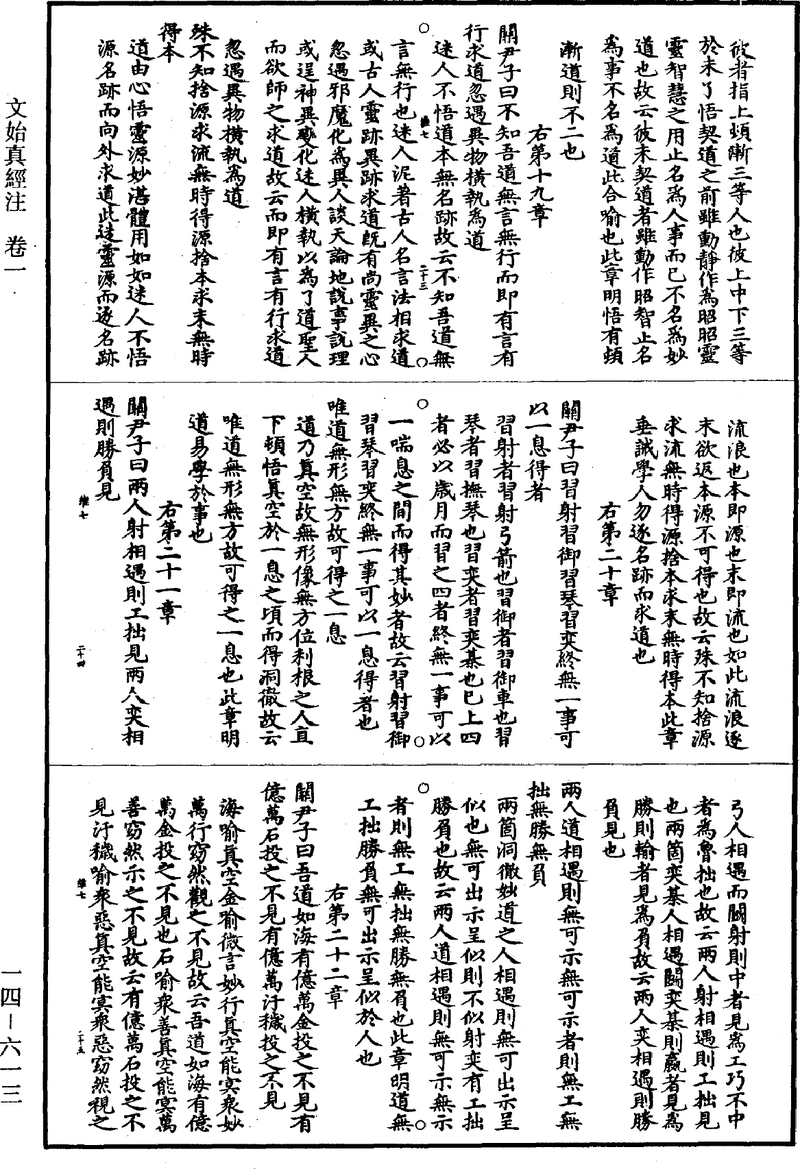 彼者指上頓漸三等人也彼上中下三等
於未了悟契道之前雖動靜作為昭昭靈
靈智慧之用止名為人事而已不名為妙
道也故云彼未契道者雖動作昭智止名
為事不名為道此合喻也此章明悟有頓
漸道則不二也
右第十九章
關尹子曰不知吾道無言無行而即有言有
行求道忽遇異物橫執為道
迷人不悟道本無名跡故云不知吾道無
言無行也迷人泥著古人名言法相求道
或古人靈跡異跡求道既有尚靈異之心
忽遇邪魔化為異人談天論地說事說理
或逞神異變化迷人橫執以為了道聖人
而欲師之求道故云而即有言有行求道
忽遇異物橫執為道
殊不知捨源求流無時得源捨本求末無時
得本
道由心悟靈源妙湛體用如如迷人不悟
源名跡而向外求道此迷靈源而逐名跡
流浪也本即源也末即流也如此流浪逐
末欲返本源不可得也故云殊不知捨源
求流無時得源捨本求末無時得本此章
垂誡學人勿逐名跡而求道也
右第二十章
關尹子曰習射習御習琴習奕終無一事可
以一息得者
習射者習射弓箭也習御者習御車也習
琴者習撫琴也習奕者習奕棊也已上四
者必以歲月而習之四者終無一事可以
一喘息之間而得其妙者故云習射習御
習琴習奕終無一事可以一息得者也
唯道無形無方故可得之一息
道乃真空故無形像無方位利根之人直
下頓悟真空於一息之頃而得洞徹故云
唯道無形無方故可得之一息也此章明
道易學於事也
右第二十一章
關尹子曰兩人射相遇則工拙見兩人奕相
遇則勝負見
弓人相遇而鬬射則中者見為工巧不中
者為魯拙也故云兩人射相遇則工拙見
也兩箇奕棊人相遇鬬奕棊則贏者見為
勝則輸者見為負故云兩人奕相遇則勝
負見也
兩人道相遇則無可示無可示者則無工無
拙無勝無負
兩箇洞徹妙道之人相遇則無可出示呈
似也無可出示呈似則不似射奕有工拙
勝負也故云兩人道相遇則無可示無示
者則無工無拙無勝無負也此章明道無
工拙勝負無可出示呈似於人也
右第二十二章
關尹子曰吾道如海有億萬金投之不見有
億萬石投之不見有億萬汙穢投之不見
海喻真空金喻微言妙行真空能冥衆妙
萬行窈然觀之不見故云吾道如海有億
萬金投之不見也石喻衆善真空能冥萬
善窈然示之不見故云有億萬石投之不
見汙穢喻衆惡真空能冥衆惡窈然視之
文始真經注 卷一
一四－六一三
維七
二十三
維七
二十四
維七
二十五